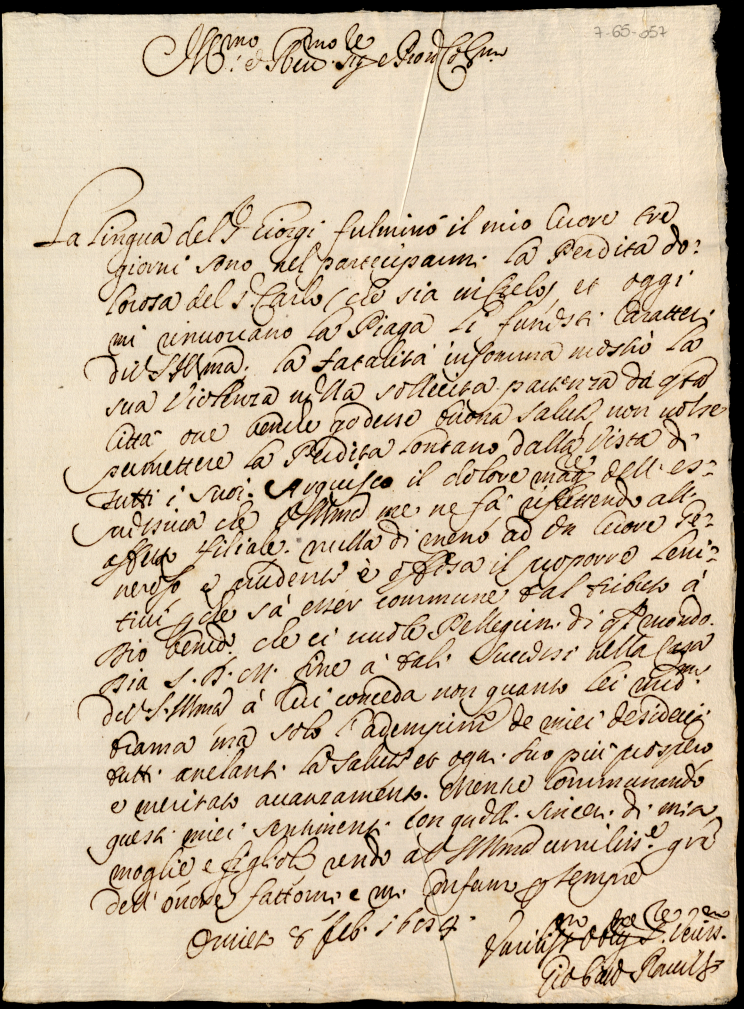 7-65-057
Ill.mo e Rev.mo Sig.re e Pron Col.mo
La lingua del S.r Giorgi fulminò il mio cuore tre
giorni sono nel partecipaxmi la Perdita do=
lorosa del S. Carlo (che sia in Cielo) et oggi
mi rinuovano la Piaga li funesti Caratteri
di V.S. Ill.ma. La fatalità insomma mostrò la
sua Violenza nella sollecita partenza da q.ta
Città, ove benche godesse buona salute, non volse
permettere la Perdita lontano dalla Vista di
tutti i suoi. Arguisco il dolore mag.re dell'es=
che V.S. Ill.ma me ne fà riflettendo all'
affetto filiale. nulla di meno ad un Cuore ge=
neroso e prudente è offesa il proporre leni=
tivi p che sà esser commune tal tributo à
Dio bened. che ci vuole Pellegrini di q.o mondo.
Sia S. D. M. fine à tali Successi nella Casa
di V.S. Ill.ma à cui conceda non quanto lei
brama ma solo l'adempim.to de miei desiderij
tutti anelanti la salute et ogni suo più prospero
e meritato avanzamento. Mentre communando
questi miei sentimenti con quelli sinceri di mia
moglie e figlioli rendo a V.S. Ill.ma umiliss.e grã
dell'onore fattomi e mi confermo p sempre
Orvieto 8 feb. 1684.
Di V.S. Ill.ma e R.ma
Gio Batt